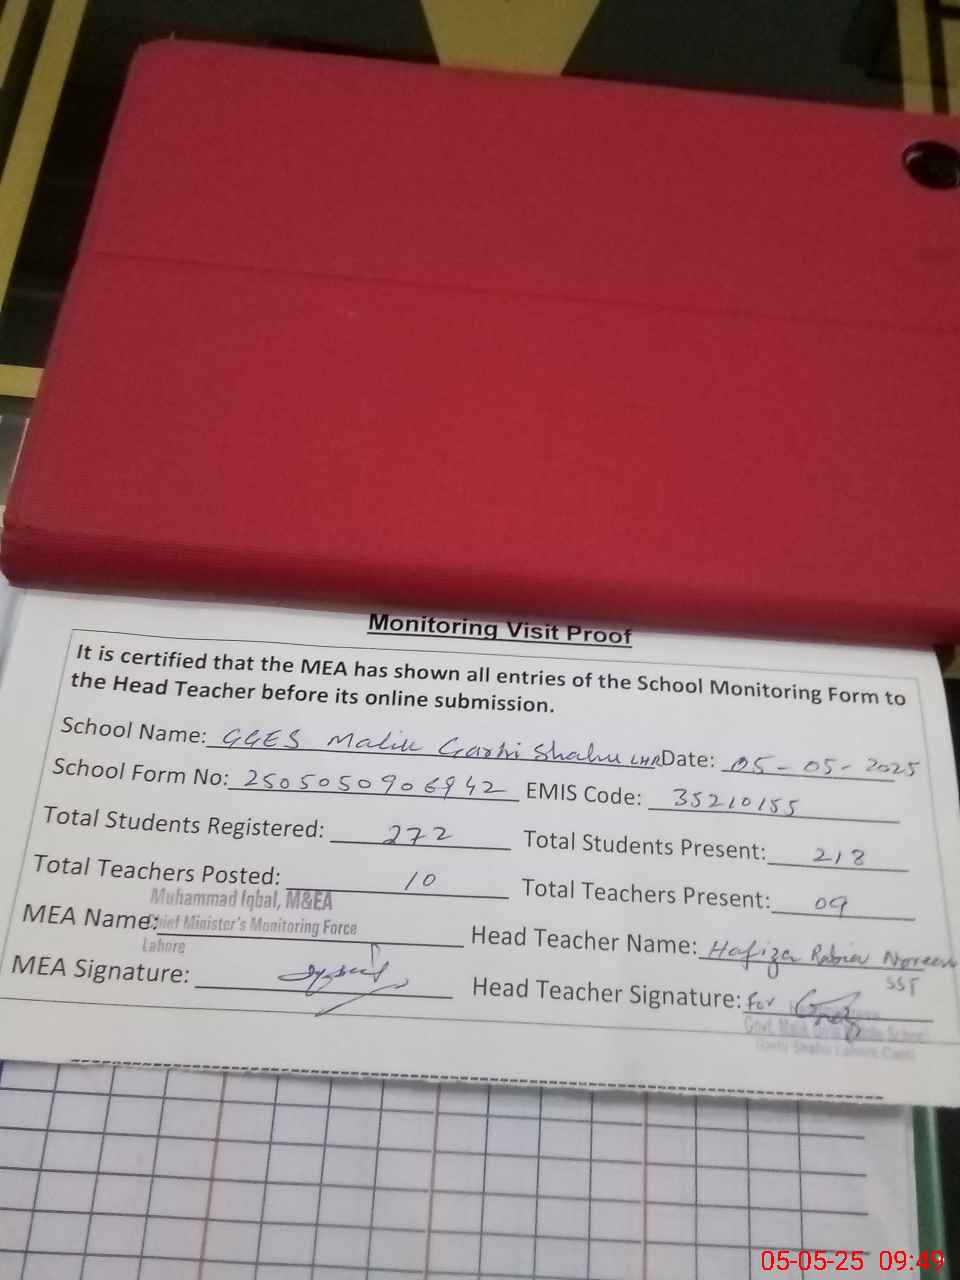 Monitoring Visit Proof
It is certified that the MEA has shown all entries of the School Monitoring Form to
the Head Teacher before its online submission.
School Name: GGES Malik Garhi Shahu LHR Date: 05-05-2025
School Form No: 2505050906942 EMIS Code: 35210155
Total Students Registered: 272 Total Students Present: 218
Total Teachers Posted: 10 Total Teachers Present: 09
Muhammad Iqbal, M&EA
MEA Name: Chief Minister's Monitoring Force Head Teacher Name: Hafiza Rabia Noreen
Lahore SST
MEA Signature: Head Teacher Signature: For
Govt. Malik School
Garhi Shahu Lahore Cantt
05-05-25 09:49